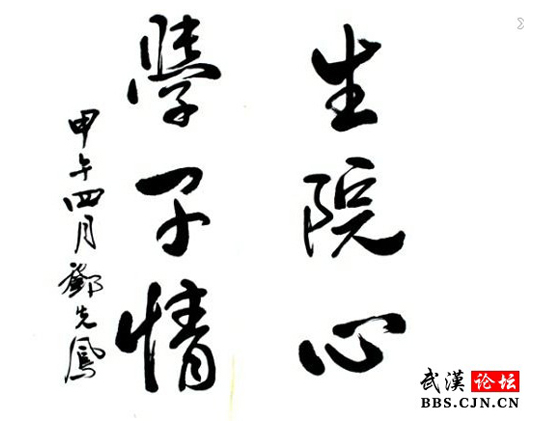 生院心
學子情
甲午四月鄧先鳳
武漢论坛
BBS.CJN.CN